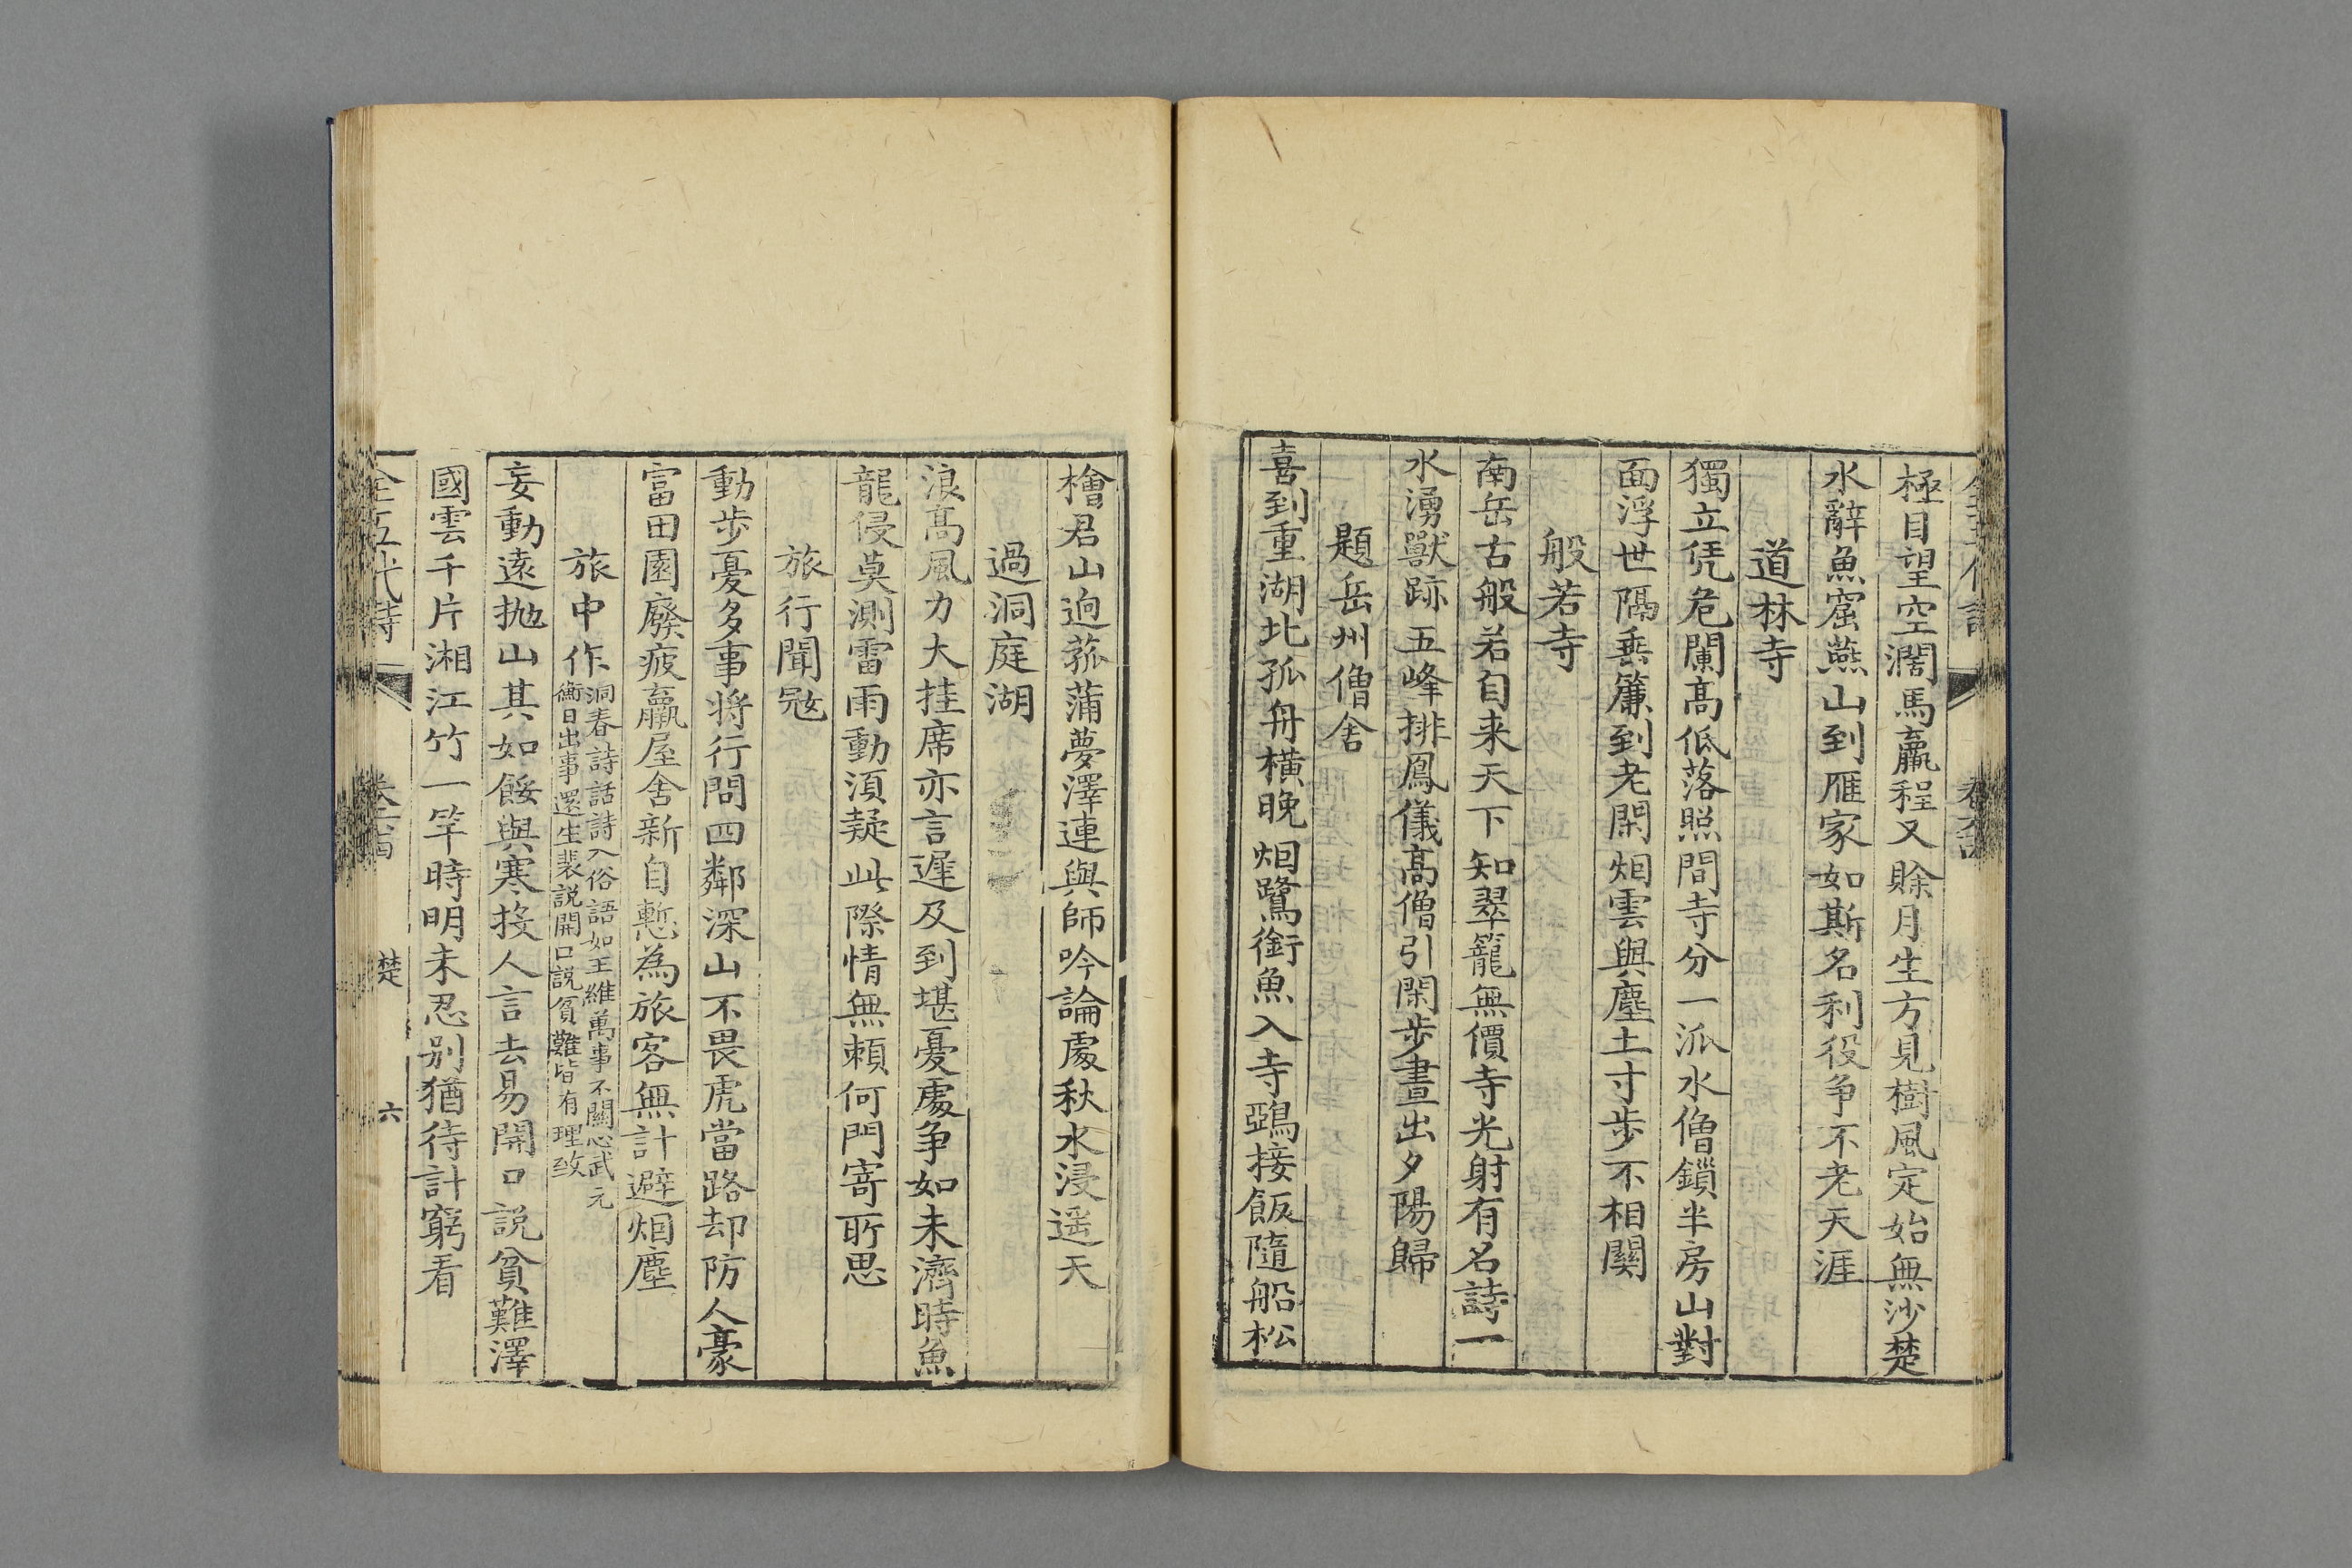 極目望空濶馬羸程又賖月生方見樹風定始無沙楚
水辭魚窟燕山到雁家如斯名利役争不老天涯
道林寺
獨立凭危闌髙低落照間寺分一派水僧鎖半房山對
面浮世隔垂簾到老閑烟雲與塵土寸步不相關
般若寺
南岳古般若自来天下知翠籠無價寺光射有名詩一
水湧獸跡五峰排鳳儀髙僧引閑步晝出夕陽歸
題岳州僧舍
喜到重湖北孤舟橫晚烟鷺銜魚入寺鵶接飯隨船松
檜君山逈菰蒲夢澤連與師吟論處秋水浸遥天
過洞庭湖
浪髙風力大挂席亦言遲及到堪憂處争如未濟時魚
龍侵莫測雷雨動湏疑此際情無頼何門寄所思
旅行聞㓂
動步憂多事将行問四鄰深山不畏虎當路却防人豪
富田園廢疲羸屋舍新自慙為旅客無計避烟塵
旅中作洞春詩話詩入俗語如王維萬事不關心武元
衡日出事還生裴説開口説貧難皆有理致
妄動遠抛山其如餒與寒投人言去易開口説貧難澤
國雲千片湘江竹一竿時明未忍别猶待計窮看
全五代詩
楚
六